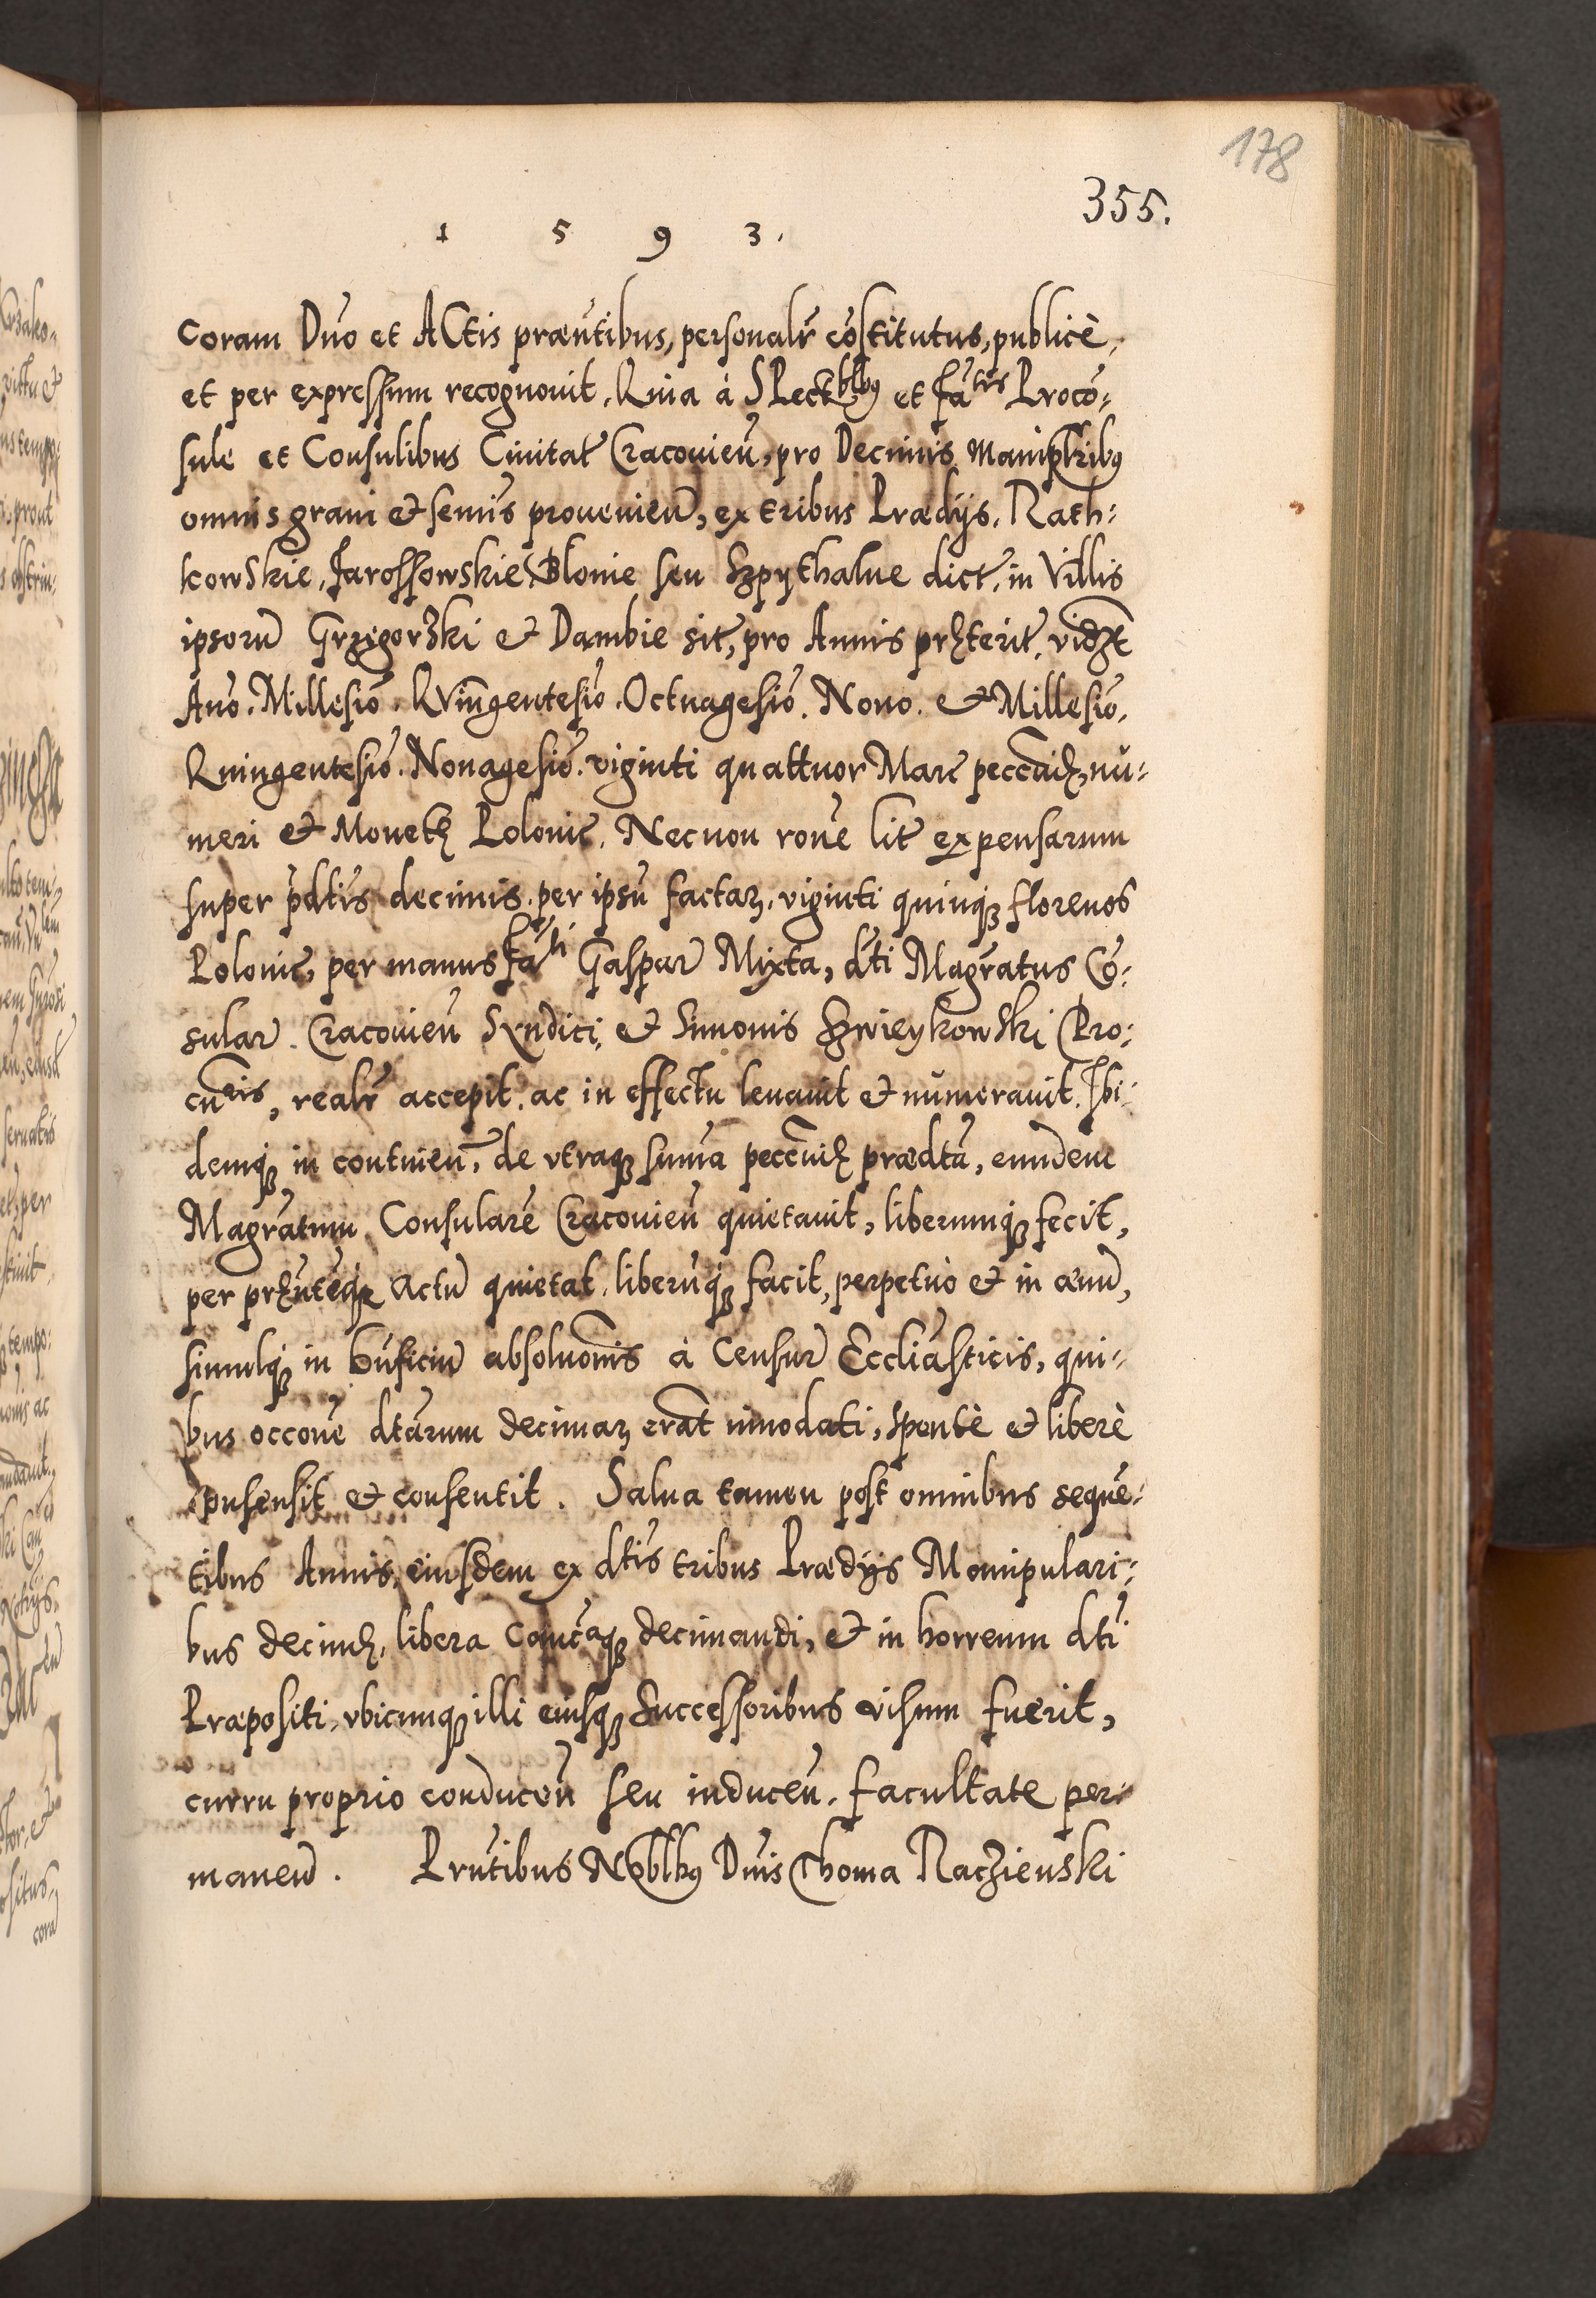 178
355.
1 5 9 3.
coram Dno et ACtis præntibus, personalr cõstitutus, publicè,
et per expressum recognouit. Quia à SPectblbq et fatis Procõ:
sule et Consulibus Ciuitat Cracouien, pro Decimis Maniplribq
omnis grani et semis prouenien, ex tribus Prædijs. Rath:
kowskie, Jarossowskie, Blonie seu Szpythalne dict, in Villis
ipsorũ Grzegorzki et Dambie sit, pro Annis pręterit, vidzt
Año. Millesiõ. Quingentesiõ. Octuagesiõ. Nono. et Millesiõ.
Quingentesiõ. Nonagesiõ. viginti quattuor Marc peccunię, nũ:
meri et Monetę Polonic. Necnon rone lit expensarum
super pdtis decimis per ipsũ factaꝝ, viginti quinqꝫ florenos
Polonic, per manus fati Gaspar Mixta, dti Magratus Cõ:
sular Cracouien Syndici, et Simonis Szwieykowski Pro:
curis, realr accepit, ac in effectu leuauit et numerauit. Ibi:
demqꝫ in continen, de vtraqꝫ sum̃a peccunię prædta, eundem
Magratum Consularẽ Cracouien quietauit, liberumqꝫ fecit,
per pręntẽqꝫ Actũ quietat, liberũqꝫ facit, perpetuò et in æuũ,
simulqꝫ in bnficiũ absoluonis à Censur Eccliasticis, qui:
bus occone dtarum decimaꝝ erãt innodati, sponte et liberè
consensit et consentit. Salua tamen post omnibus sequẽ:
tibus Annis, eiusdem ex dtis tribus Prædijs Manipulari:
bus decimę, libera decimandi, et in horreum dti
Præpositi, vbicunqꝫ illi eiusqꝫ Successoribus visum fuerit,
curru proprio conducen seu inducen, facultate per:
manen. Prntibus Noblbq Dnis Thoma Raczienski